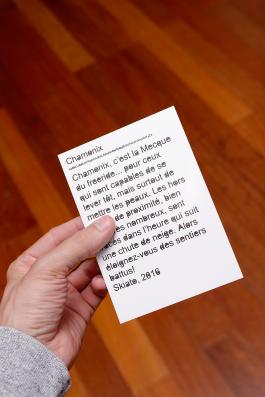 Chamonix
Chamonix, c'est la Mecque
du freeride... pour ceux
qui sont capables de se
lever tôt, mais surtout de
mettre les peaux. Les hors
de proximité, bien
nombreux, sont
dans l'heure qui suit
une chute de neige. Alors
éloignez-vous des sentiers
battus!
Skialo, 2016